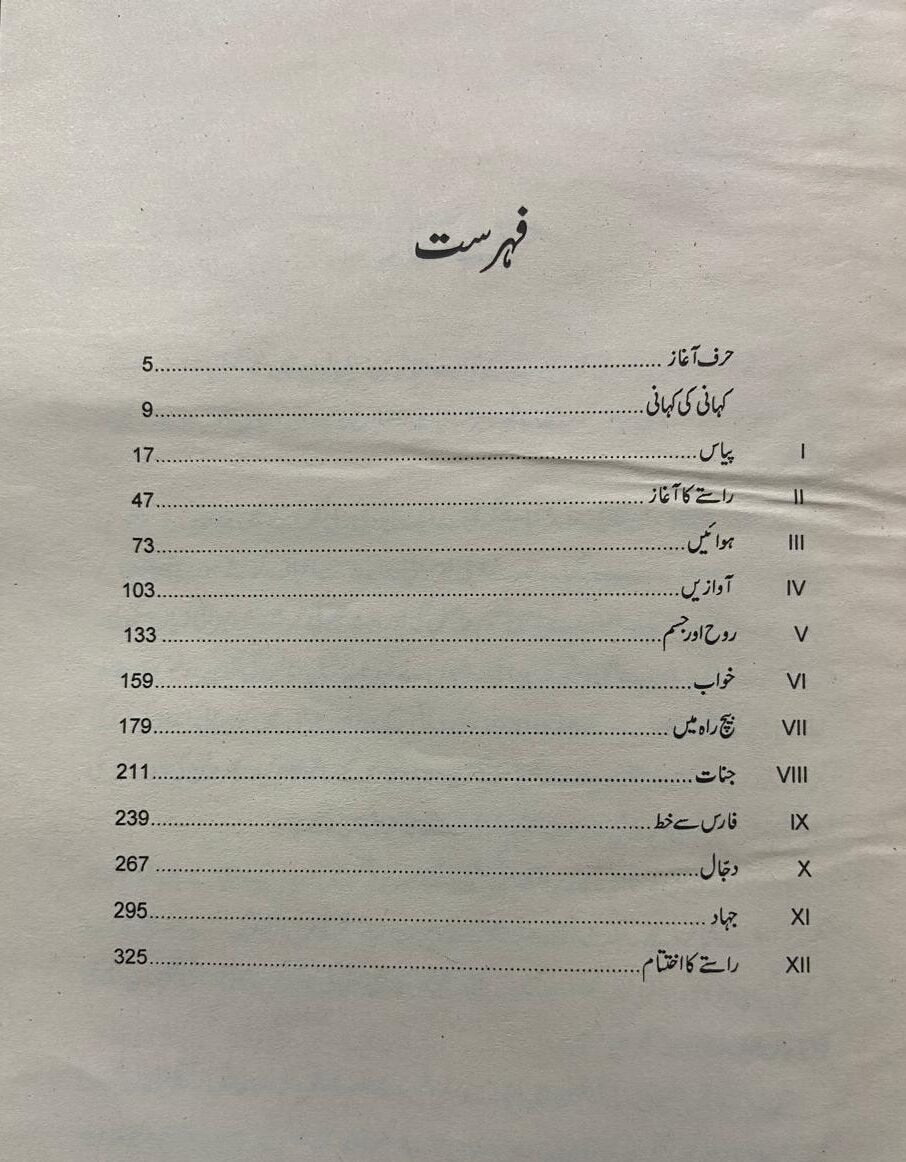 فہرست
حرف آغاز ..... 5
کہانی کی کہانی ..... 9
I پیاس ..... 17
II راستے کا آغاز ..... 47
III ہوائیں ..... 73
IV آوازیں ..... 103
V روح اور جسم ..... 133
VI خواب ..... 159
VII بیچ راہ میں ..... 179
VIII جنات ..... 211
IX فارس سے خط ..... 239
X دجّال ..... 267
XI جہاد ..... 295
XII راستے کا اختتام ..... 325